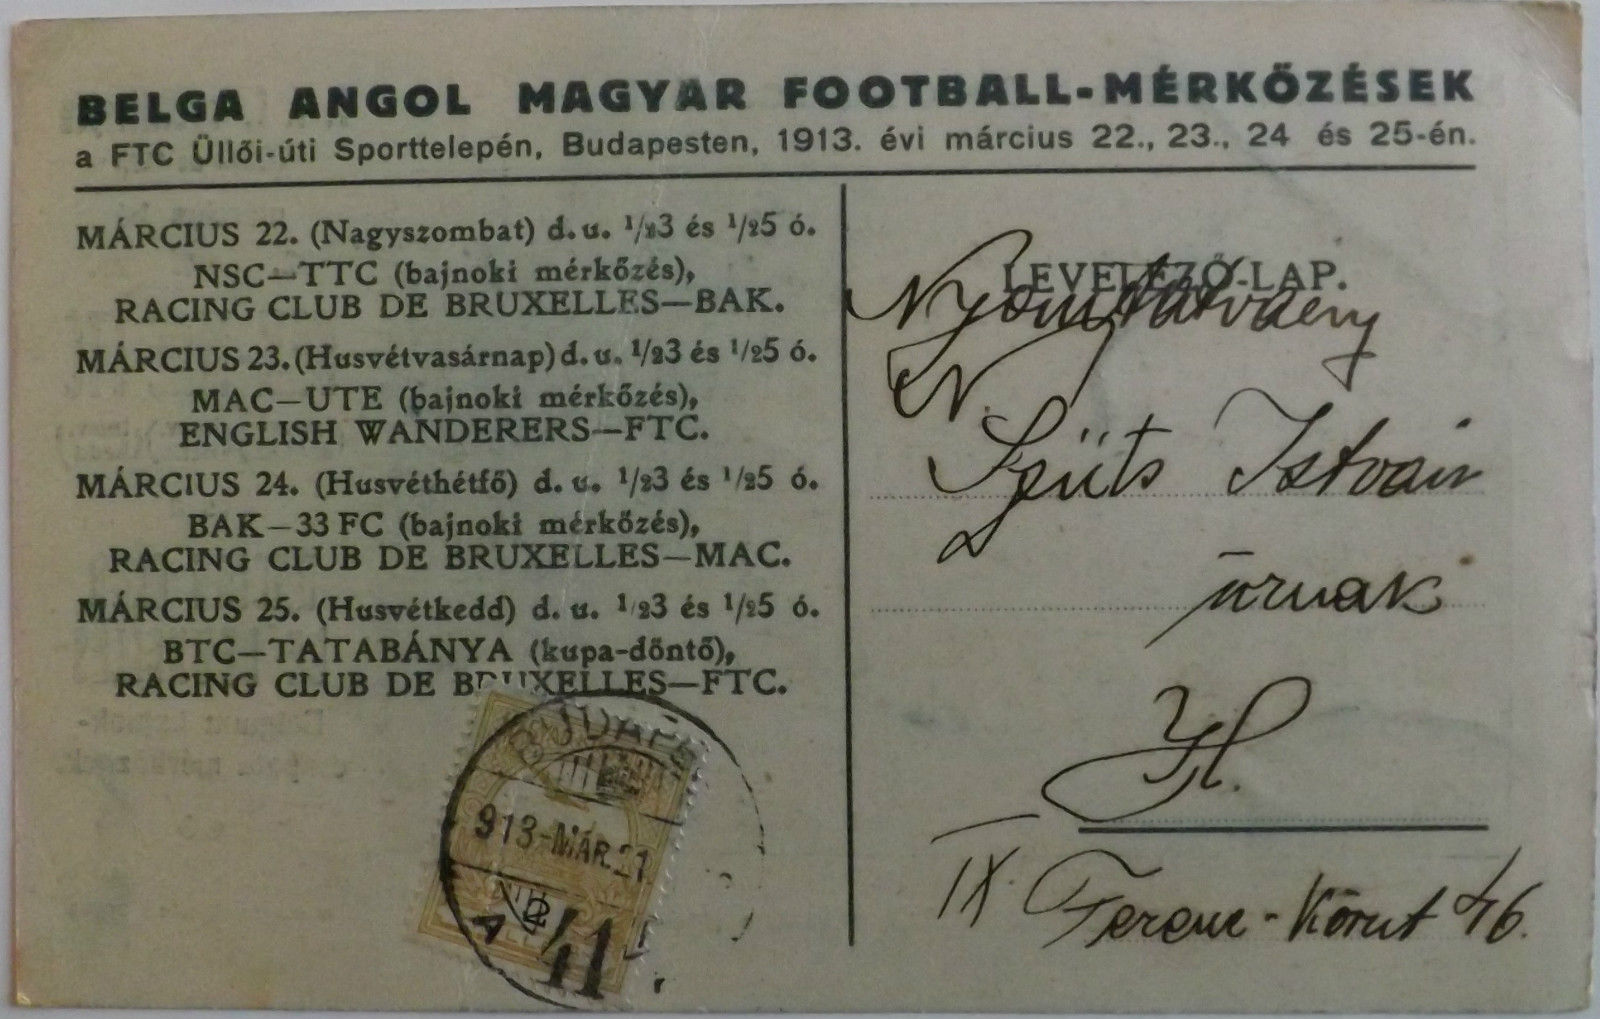 BELGA ANGOL MAGYAR FOOTBALL-MÉRKŐZÉSEK
a FTC Üllői-úti Sporttelepén, Budapesten, 1913. évi március 22., 23., 24 és 25-én.
MÁRCIUS 22. (Nagyszombat) d. u. 1/23 és 1/25 ó.
NSC—TTC (bajnoki mérkőzés),
RACING CLUB DE BRUXELLES—BAK.
MÁRCIUS 23. (Husvétvasárnap) d. u. 1/23 és 1/25 ó.
MAC—UTE (bajnoki mérkőzés),
ENGLISH WANDERERS—FTC.
MÁRCIUS 24. (Husvéthétfő) d. u. 1/23 és 1/25 ó.
BAK—33 FC (bajnoki mérkőzés),
RACING CLUB DE BRUXELLES—MAC.
MÁRCIUS 25. (Husvétkedd) d. u. 1/23 és 1/25 ó.
BTC—TATABÁNYA (kupa-döntő),
RACING CLUB DE BRUXELLES—FTC.
BUDAPE
913-MÁR.21
LEVELEZŐ-LAP.
Nyomtatvány
N.
Szüts István
úrnak
IX. Ferenc-Körut 46.